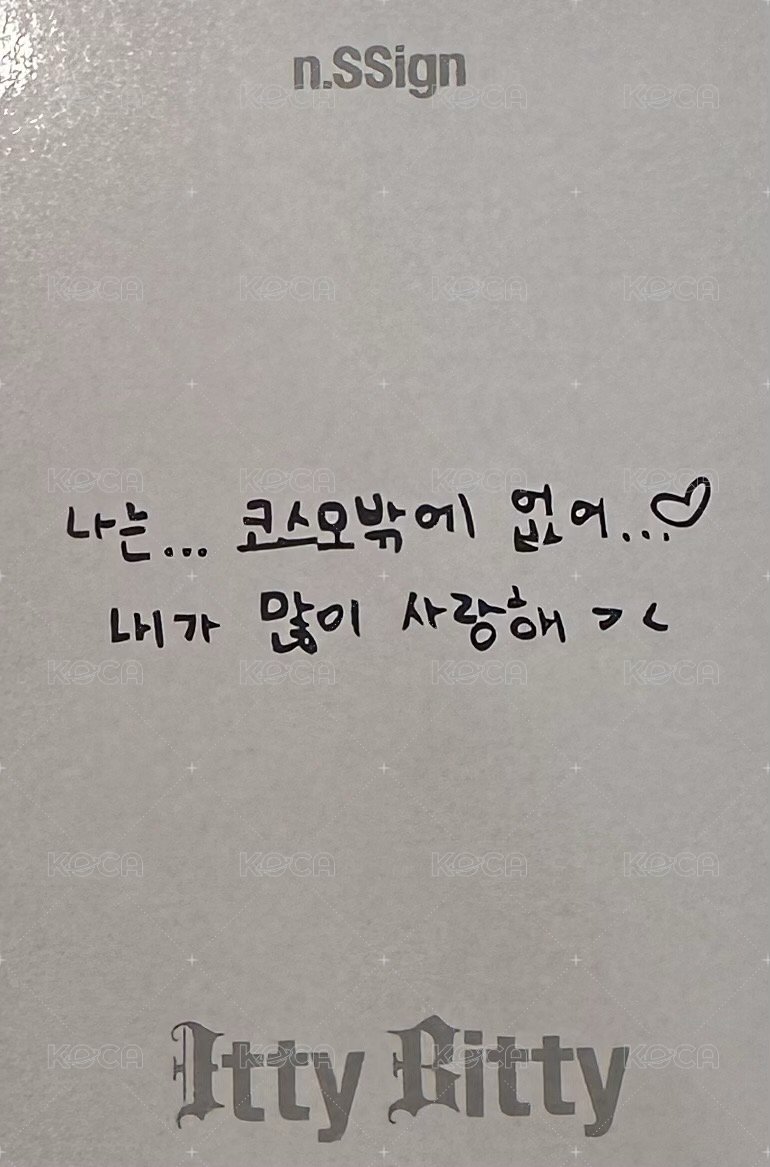 n.SSign
나는... 코스모밖에 없어...♡
내가 많이 사랑해 > <
Itty Bitty